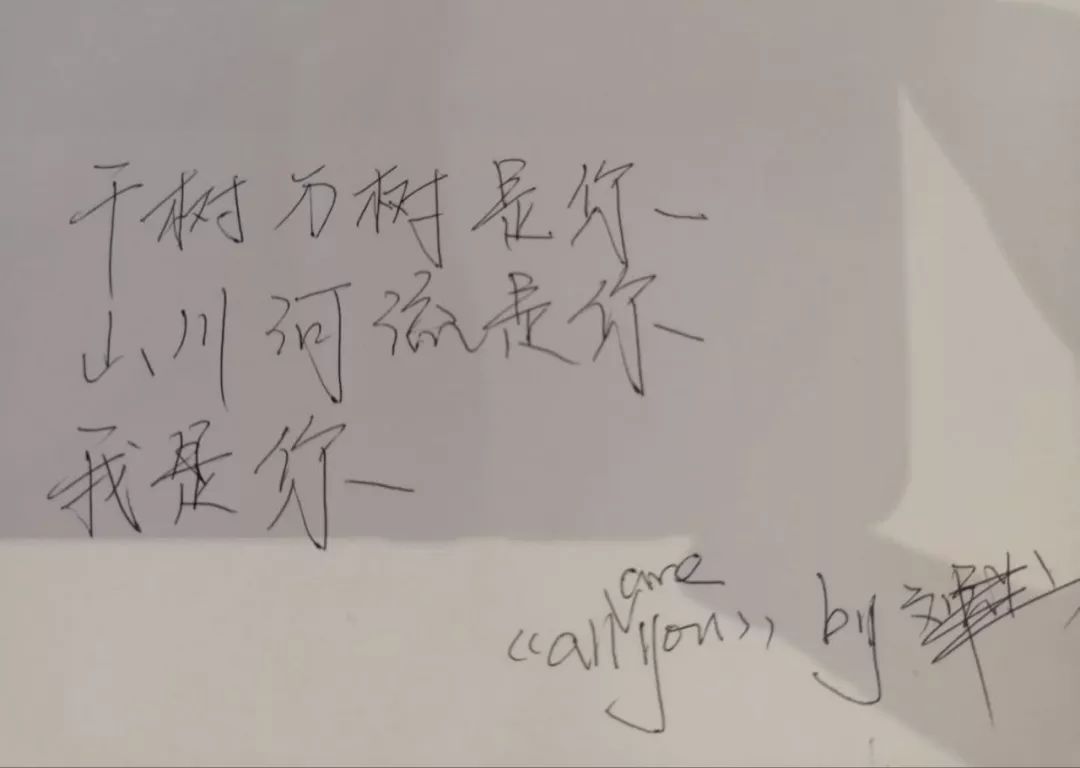 千树万树是你
山川河流是你
我是你
《all are you》 by